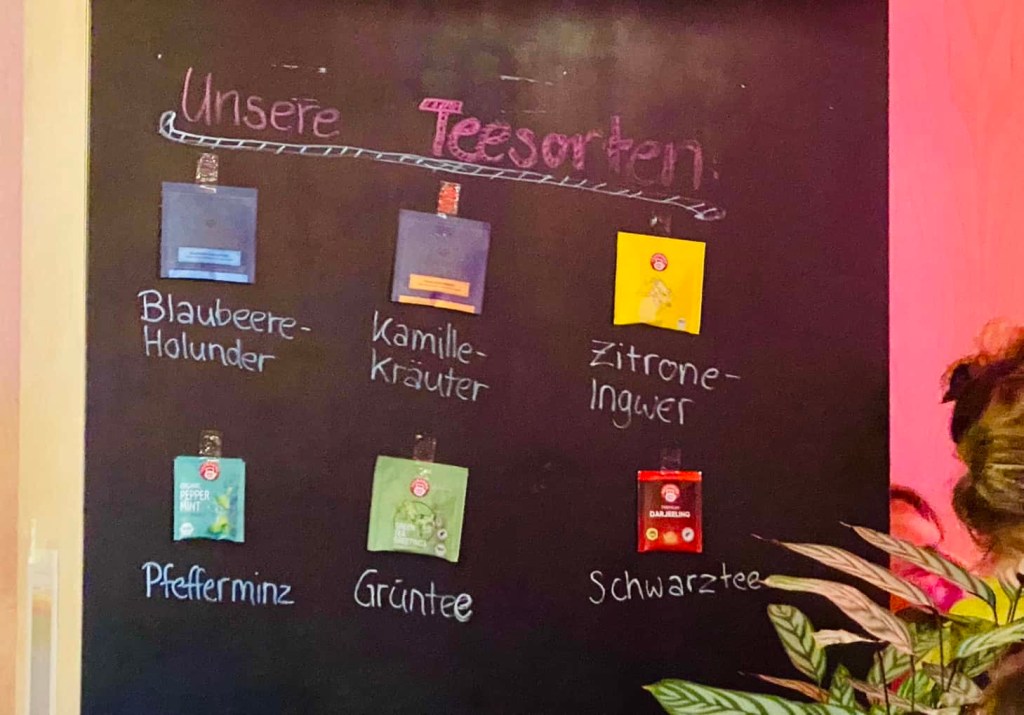 Unsere Teesorten
Blaubeere-
Holunder
Kamille-
Kräuter
Zitrone-
Ingwer
ORGANIC
PEPPER
MINT
DARJEELING
Pfefferminz
Grüntee
Schwarztee